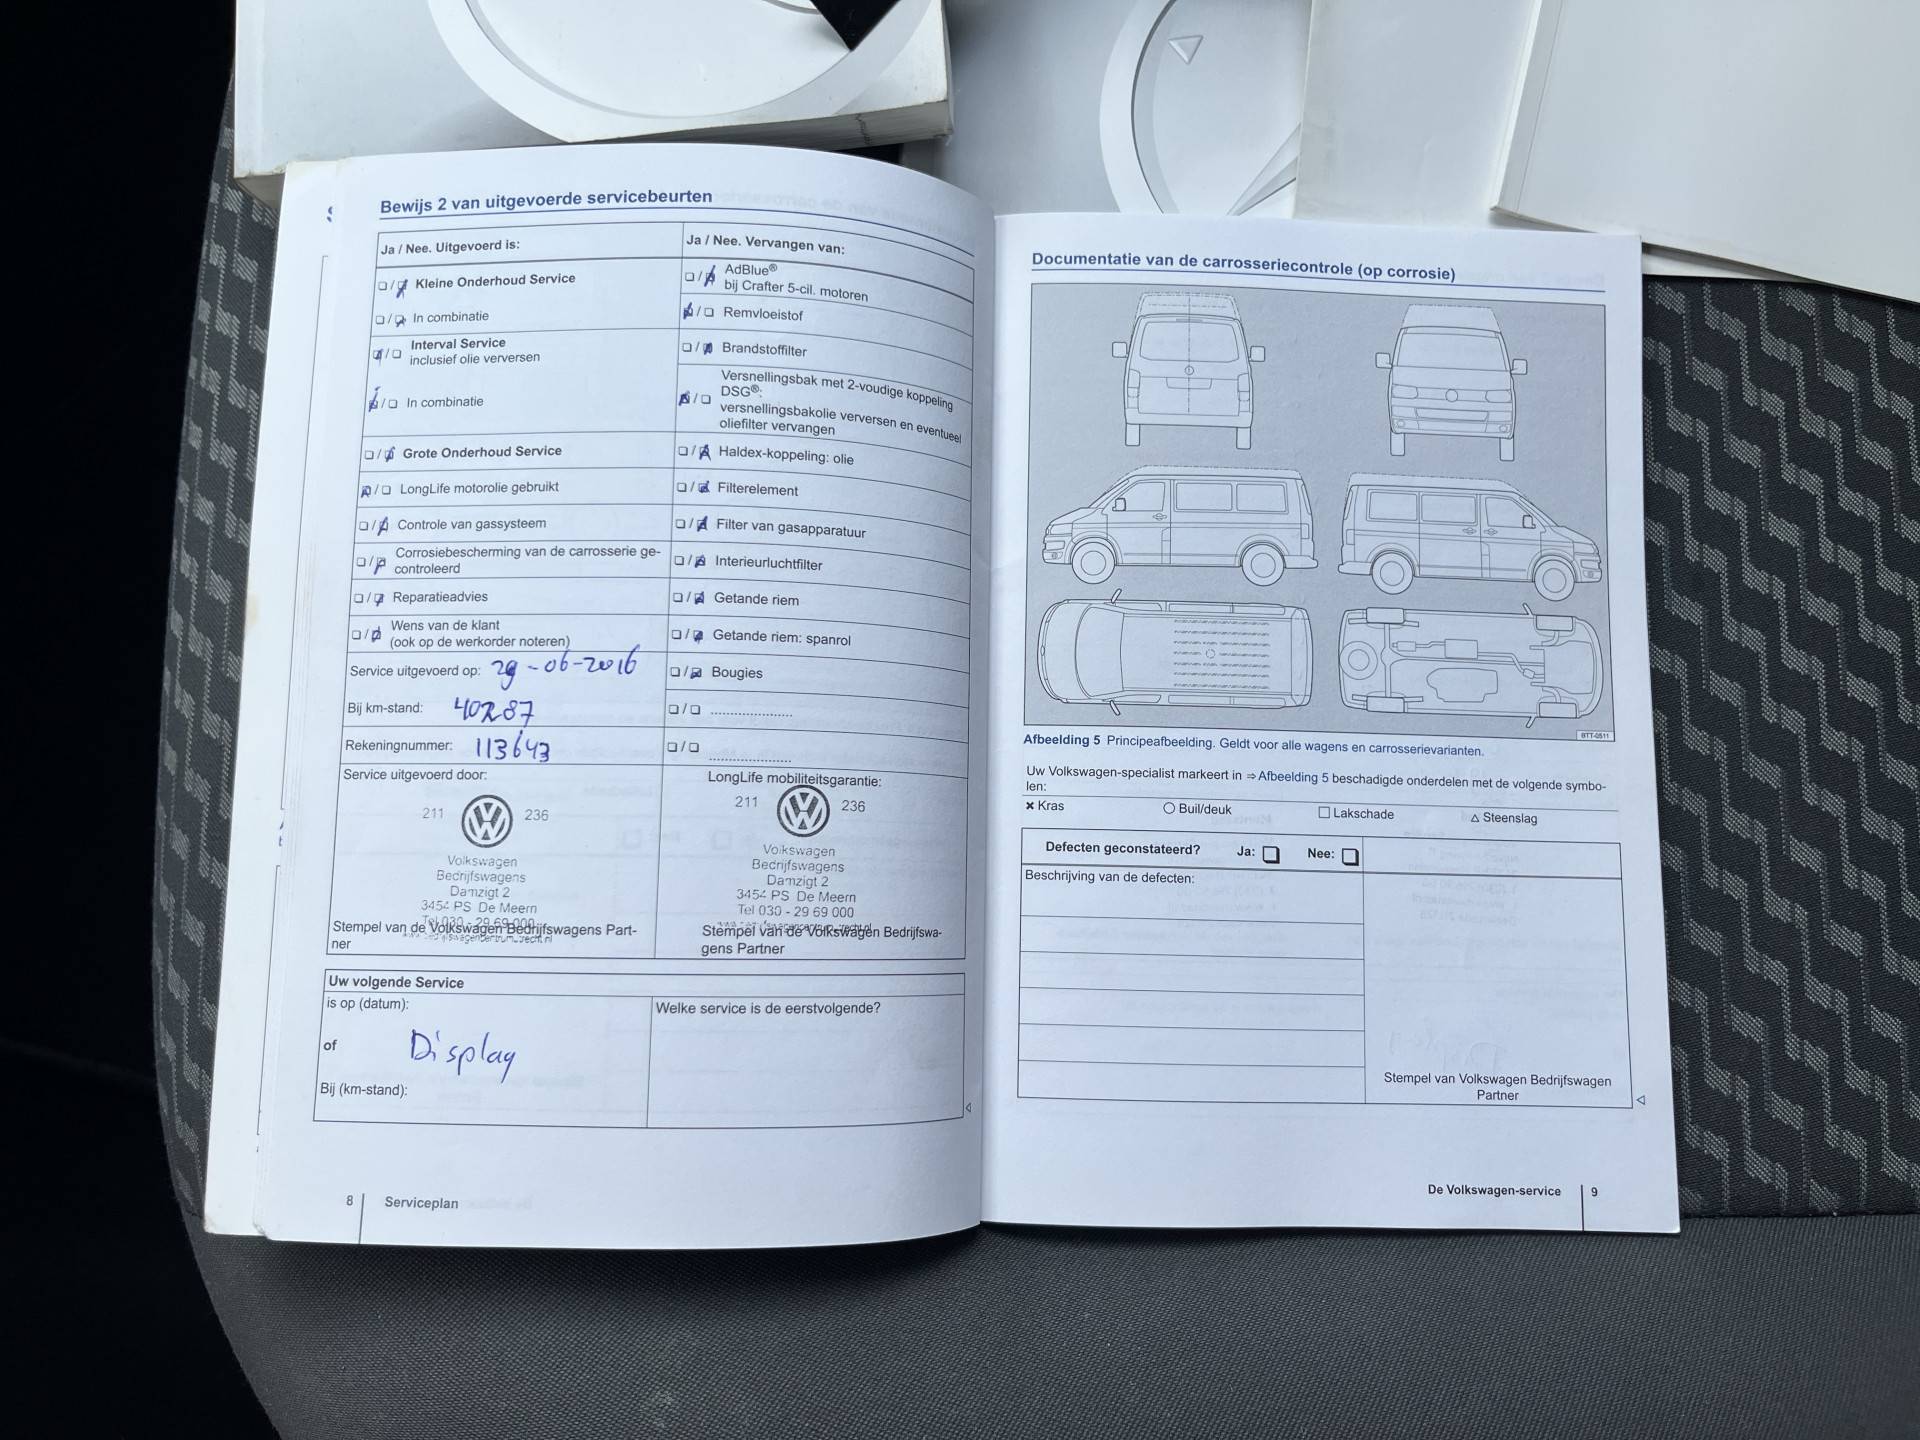 Bewijs 2 van uitgevoerde servicebeurten
Ja / Nee. Uitgevoerd is:
Kleine Onderhoud Service
In combinatie
Interval Service
inclusief olie verversen
In combinatie
Grote Onderhoud Service
LongLife motorolie gebruikt
Controle van gassysteem
Corrosiebescherming van de carrosserie ge-
controleerd
Reparatieadvies
Wens van de klant
(ook op de werkorder noteren)
Service uitgevoerd op: 29-06-2016
Bij km-stand: 40287
Rekeningnummer: 113643
Service uitgevoerd door:
211 236
Volkswagen
Bedrijfswagens
Damzigt 2
3454 PS De Meern
Tel 030 - 29 69 000
Stempel van de Volkswagen Bedrijfswagens Part-
ner
Ja / Nee. Vervangen van:
AdBlue®
bij Crafter 5-cil. motoren
Remvloeistof
Brandstoffilter
Versnellingsbak met 2-voudige koppeling
DSG®:
versnellingsbakolie verversen en eventueel
oliefilter vervangen
Haldex-koppeling: olie
Filterelement
Filter van gasapparatuur
Interieurluchtfilter
Getande riem
Getande riem: spanrol
Bougies
LongLife mobiliteitsgarantie:
211 236
Volkswagen
Bedrijfswagens
Damzigt 2
3454 PS De Meern
Tel 030 - 29 69 000
Stempel van de Volkswagen Bedrijfswa-
gens Partner
Uw volgende Service
is op (datum):
of
Display
Bij (km-stand):
Welke service is de eerstvolgende?
8 Serviceplan
Documentatie van de carrosseriecontrole (op corrosie)
BTT-0511
Afbeelding 5 Principeafbeelding. Geldt voor alle wagens en carrosserievarianten.
Uw Volkswagen-specialist markeert in ⇒ Afbeelding 5 beschadigde onderdelen met de volgende symbo-
len:
× Kras ○ Buil/deuk □ Lakschade △ Steenslag
Defecten geconstateerd? Ja: Nee:
Beschrijving van de defecten:
Stempel van Volkswagen Bedrijfswagen
Partner
De Volkswagen-service 9